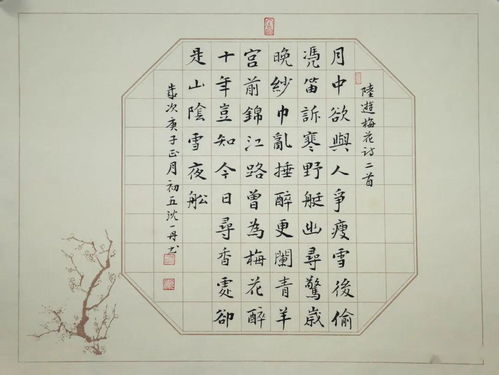 陸遊梅花詩二首
月中欲與人爭瘦雪後偷
憑笛訴寒野艇幽尋驚歲
晚紗巾亂插醉更闌青羊
宮前錦江路曾為梅花醉
十年豈知今日尋香處卻
是山陰雪夜舩
歲次庚子正月初五沈一丹书